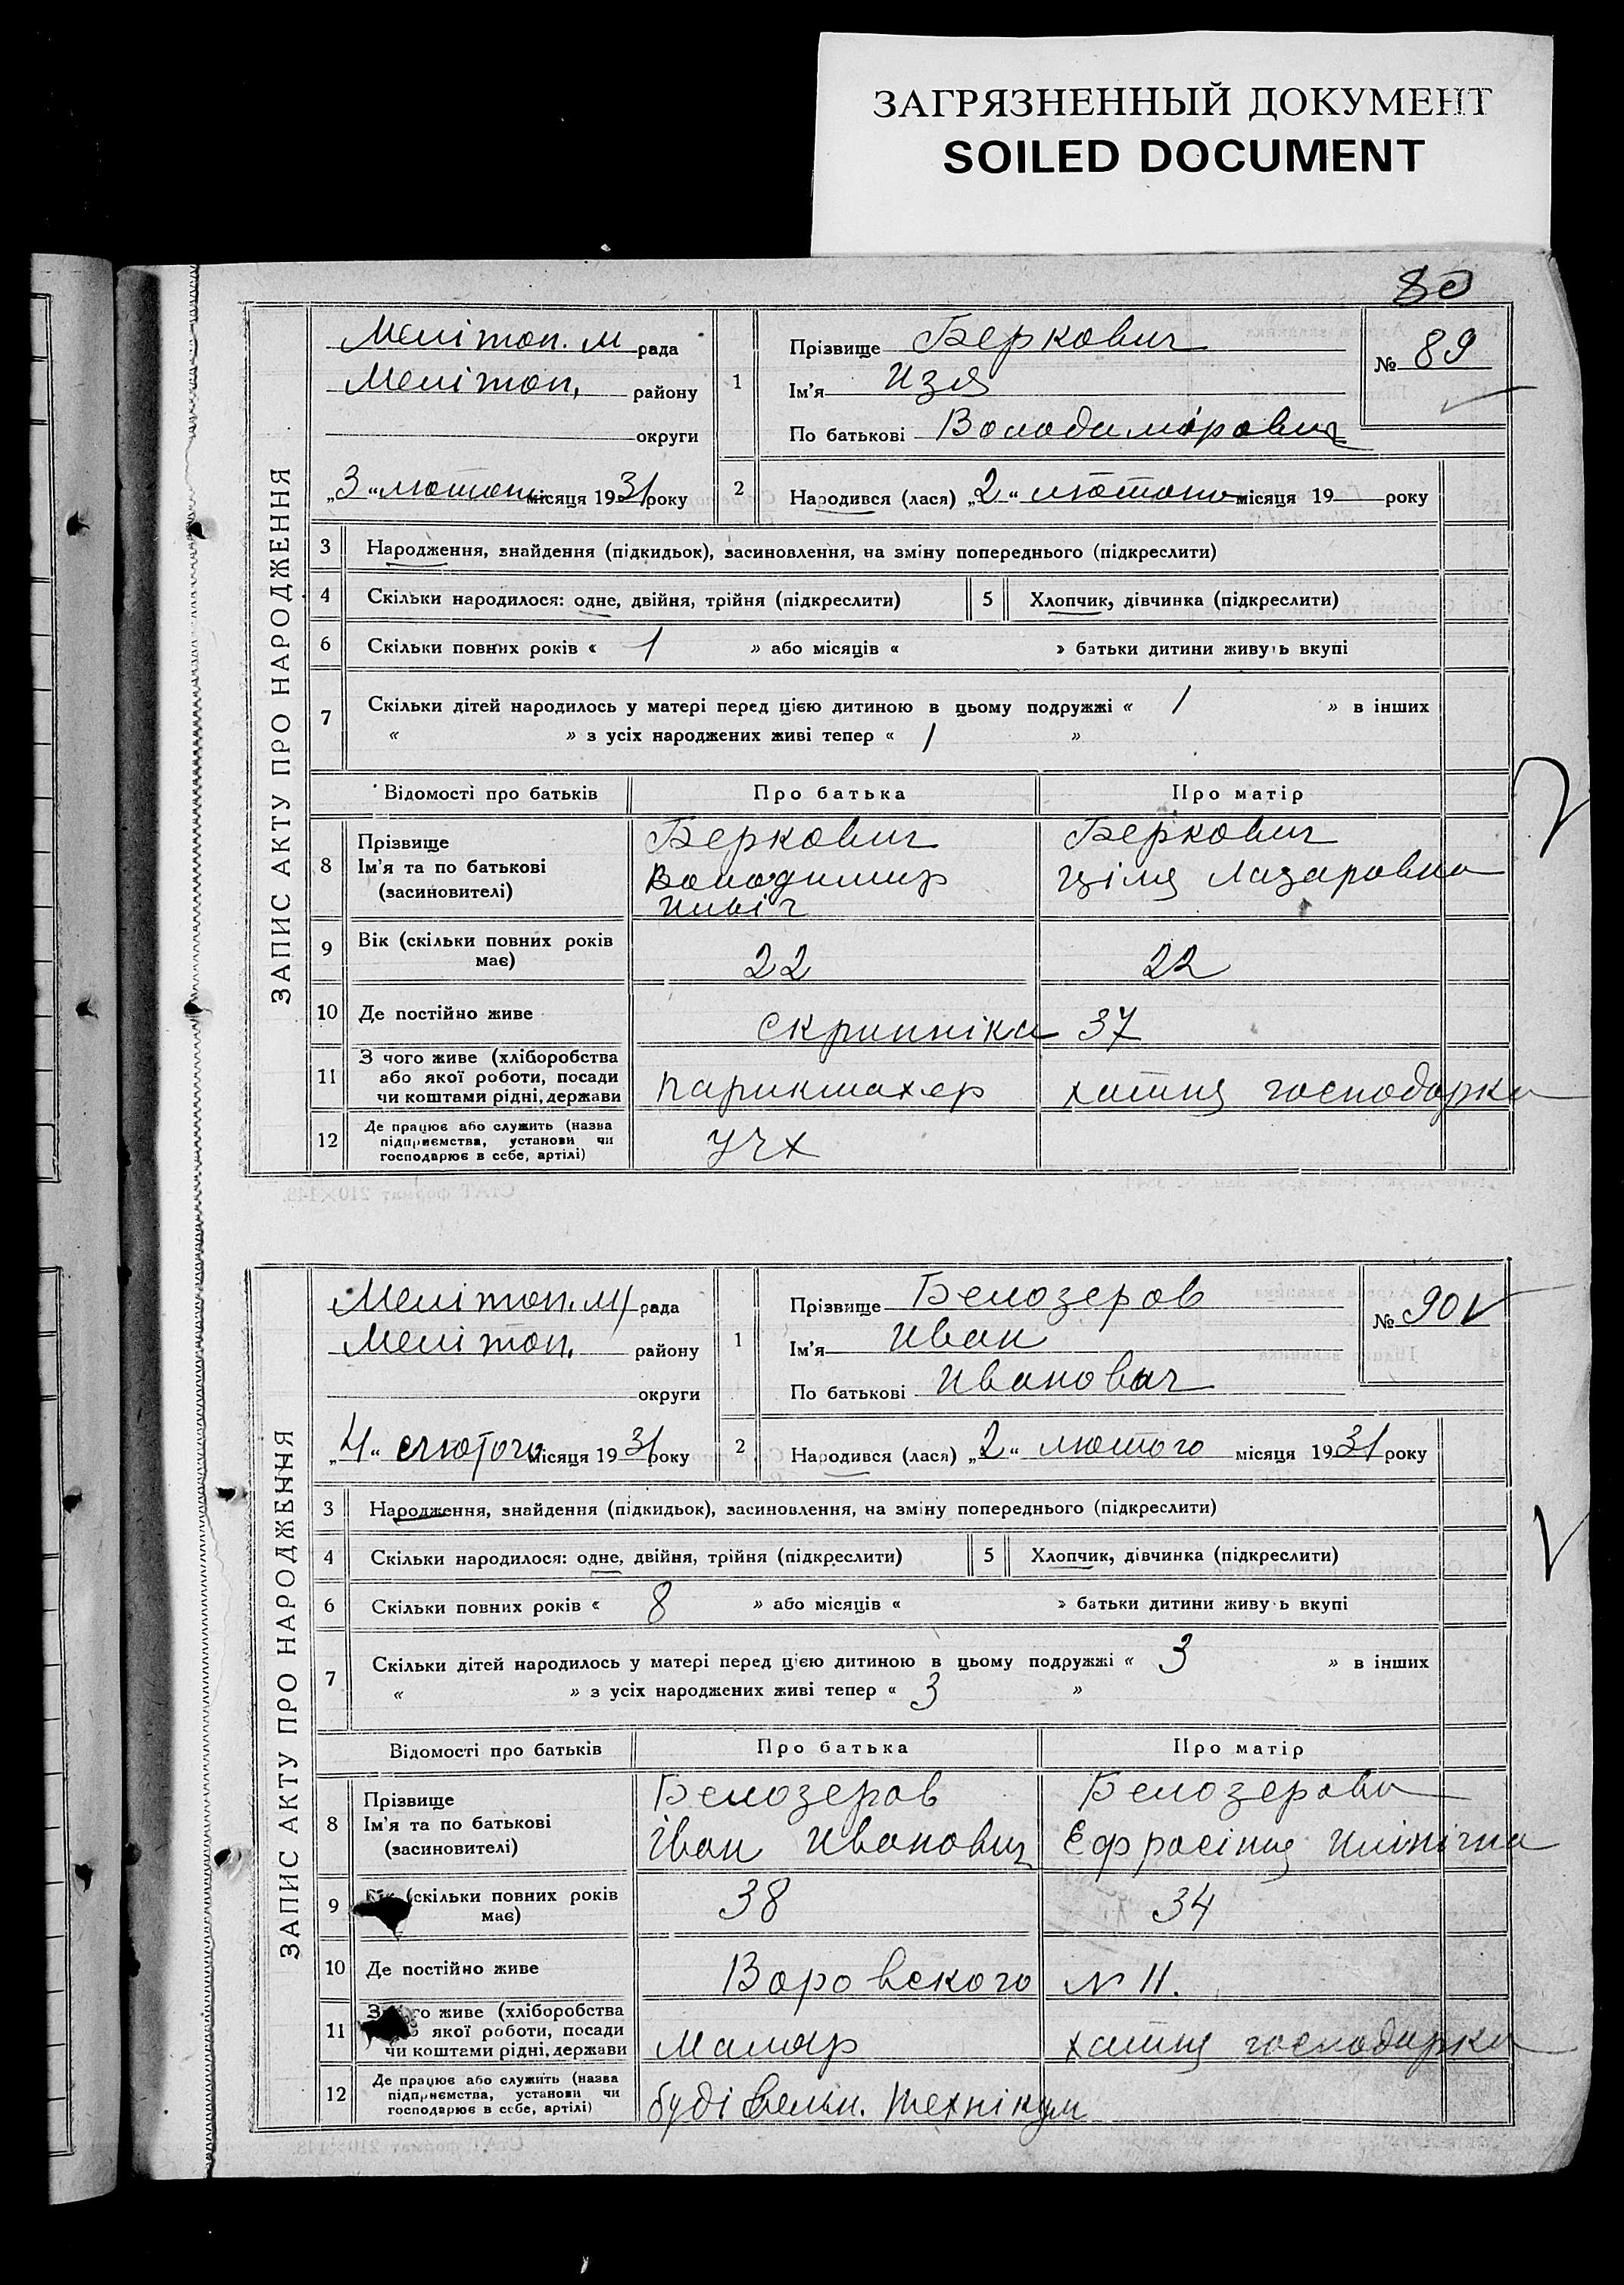 ЗАГРЯЗНЕННЫЙ ДОКУМЕНТ
SOILED DOCUMENT
80
ЗАПИС АКТУ ПРО НАРОДЖЕННЯ
Меліт​оп. м рада
Меліт​оп. району
округи
„3“ лютого місяця 1931 року
1 Прізвище Беркович
Ім'я Изя
По батькові Володимірович
№ 89
2 Народився (лася) „2“ лютого місяця 19 року
3 Народження, знайдення (підкидьок), засиновлення, на зміну попереднього (підкреслити)
4 Скільки народилося: одне, двійня, трійня (підкреслити) 5 Хлопчик, дівчинка (підкреслити)
6 Скільки повних років « 1 » або місяців « » батьки дитини живуть вкупі
7 Скільки дітей народилось у матері перед цією дитиною в цьому подружжі « 1 » в інших
« » з усіх народжених живі тепер « 1 »
Відомості про батьків Про батька Про матір
8 Прізвище Беркович Беркович
Ім'я та по батькові Володимир Ціля Лазаровна
(засиновителі)
9 Вік (скільки повних років має) 22 22
10 Де постійно живе Скрипніка 37
11 З чого живе (хліборобства
або якої роботи, посади
чи коштами рідні, держави парикмахер хатня господарка
12 Де працює або служить (назва
підприємства, установи чи
господарює в себе, артілі) УЧХ
ЗАПИС АКТУ ПРО НАРОДЖЕННЯ
Меліт​оп. м рада
Меліт​оп. району
округи
„4“ лютого місяця 1931 року
1 Прізвище Белозеров
Ім'я Иван
По батькові Иванович
№ 90
2 Народився (лася) „2“ лютого місяця 1931 року
3 Народження, знайдення (підкидьок), засиновлення, на зміну попереднього (підкреслити)
4 Скільки народилося: одне, двійня, трійня (підкреслити) 5 Хлопчик, дівчинка (підкреслити)
6 Скільки повних років « 8 » або місяців « » батьки дитини живуть вкупі
7 Скільки дітей народилось у матері перед цією дитиною в цьому подружжі « 3 » в інших
« » з усіх народжених живі тепер « 3 »
Відомості про батьків Про батька Про матір
8 Прізвище Белозеров Белозерова
Ім'я та по батькові Іван Иванович Ефросіння Илінічна
(засиновителі)
9 (скільки повних років має) 38 34
10 Де постійно живе Воровского № 11.
11 З чого живе (хліборобства
якої роботи, посади
чи коштами рідні, держави Маляр хатня господарка
12 Де працює або служить (назва
підприємства, установи чи
господарює в себе, артілі) будівельн. технікум